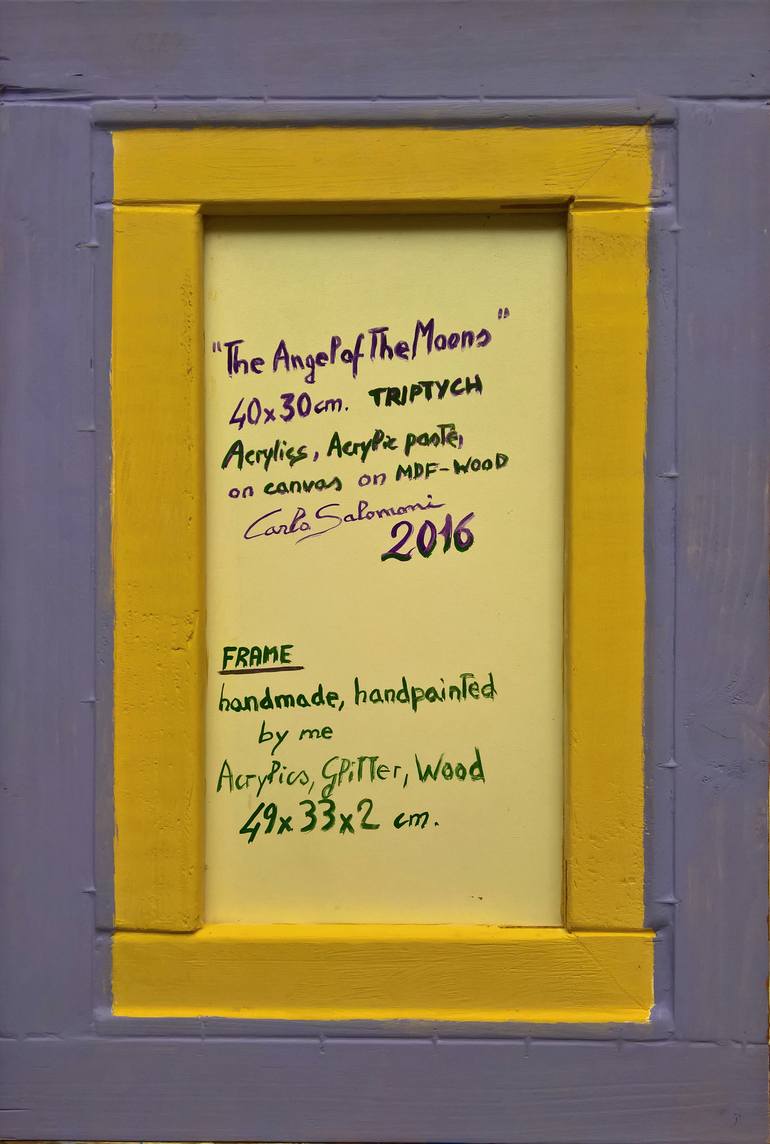 "The Angel of The Moons"
40x30cm. TRIPTYCH
Acrylics, Acrylic paste,
on canvas on MDF-WOOD
Carlo Salomoni
2016
FRAME
handmade, handpainted
by me
Acrylics, Glitter, Wood
49x33x2 cm.